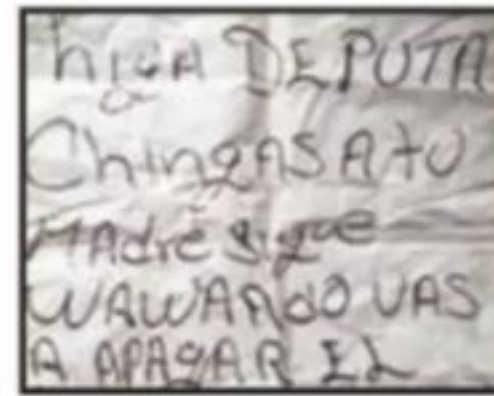 hiGA DEPUTA
ChingAS A tU
MAdre sigue
WAWANdO VAS
A APAgAR EL